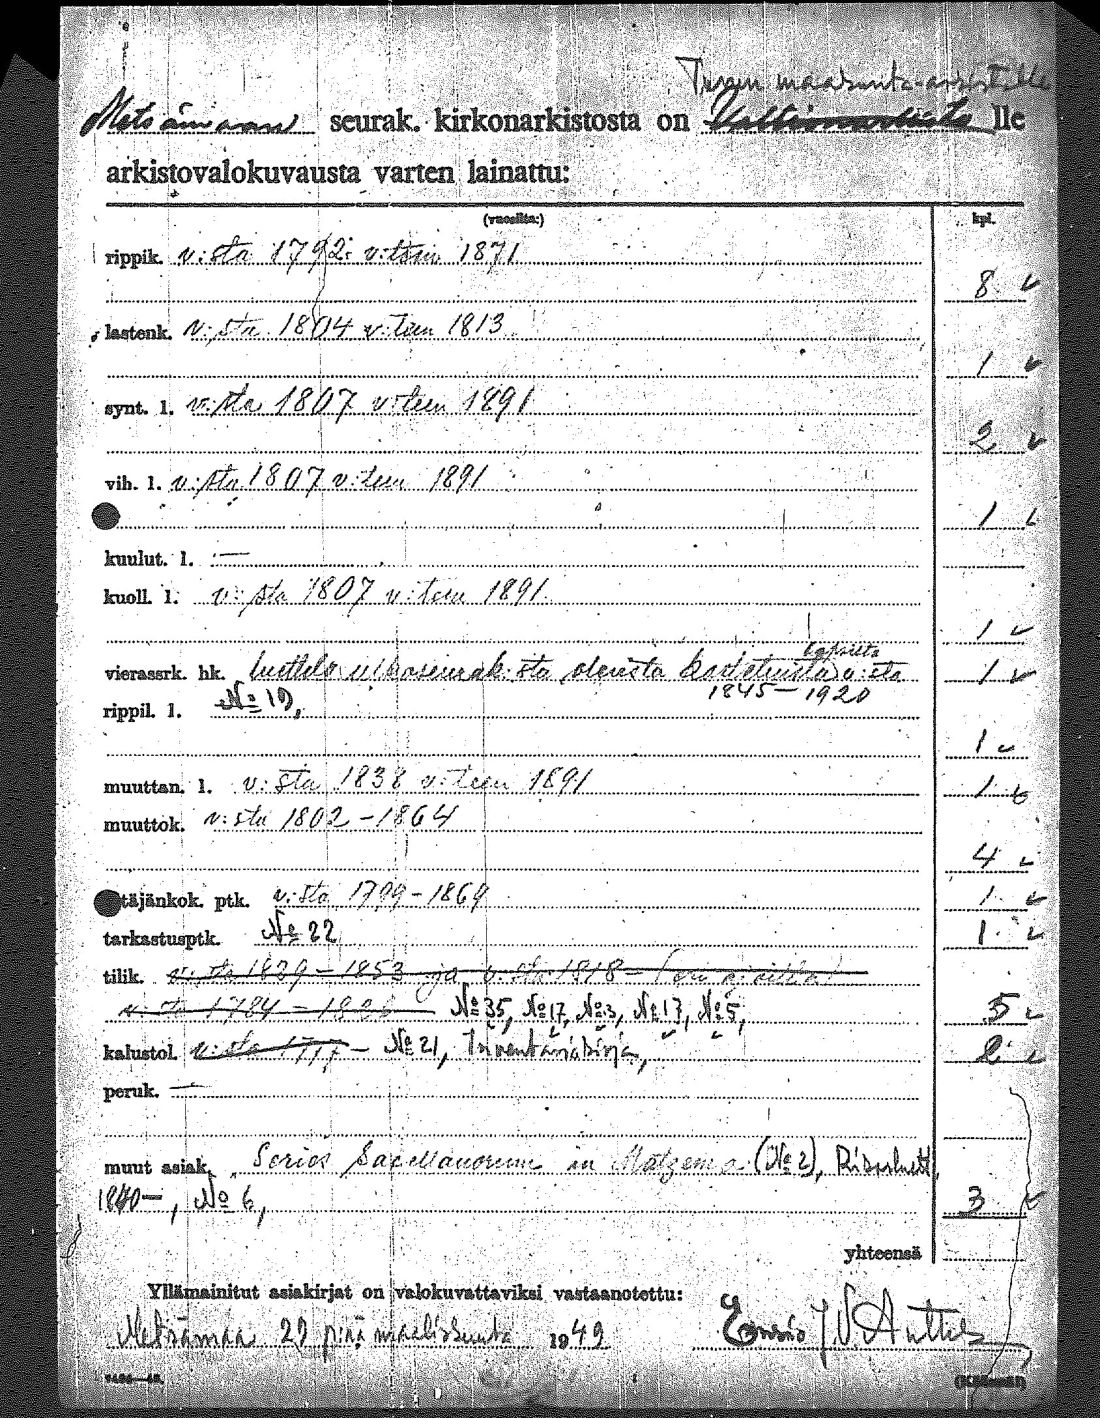 Turun maakunta-arkistolle
Metsämaan seurak. kirkonarkistosta on Valtionarkisto lle
arkistovalokuvausta varten lainattu:
(vuosilta:) kpl.
rippik. v:sta 1792 v:teen 1871
8
lastenk. v:sta 1804 v:teen 1813
1
synt. l. v:sta 1807 v:teen 1891
2
vih. l. v:sta 1807 v:teen 1891
1
kuulut. l. —
kuoll. l. v:sta 1807 v:teen 1891
1
vierassrk. hk. luettelo ulkoseurak:sta olevista v:sta 1
1845-1920
rippil. l. № 19,
1
muuttan. l. v:sta 1838 v:teen 1891 1
muuttok. v:sta 1802-1864
4
täjänkok. ptk. v:sta 1799-1869 1
tarkastusptk. № 22 1
tilik. v:sta 1839-1853 ja v:sta 1818-
v:sta 1784 - № 35, № 17, № 3, № 13, № 5, 5
kalustol. v:sta 1777- № 21, Inventariokirja, 2
peruk. —
muut asiak. Series Sacellanorum in Mätzema (№ 2),
1840-, № 6, 3
yhteensä
Yllämainitut asiakirjat on valokuvattaviksi vastaanotettu:
Metsämaa 29 p:nä maaliskuuta 1949